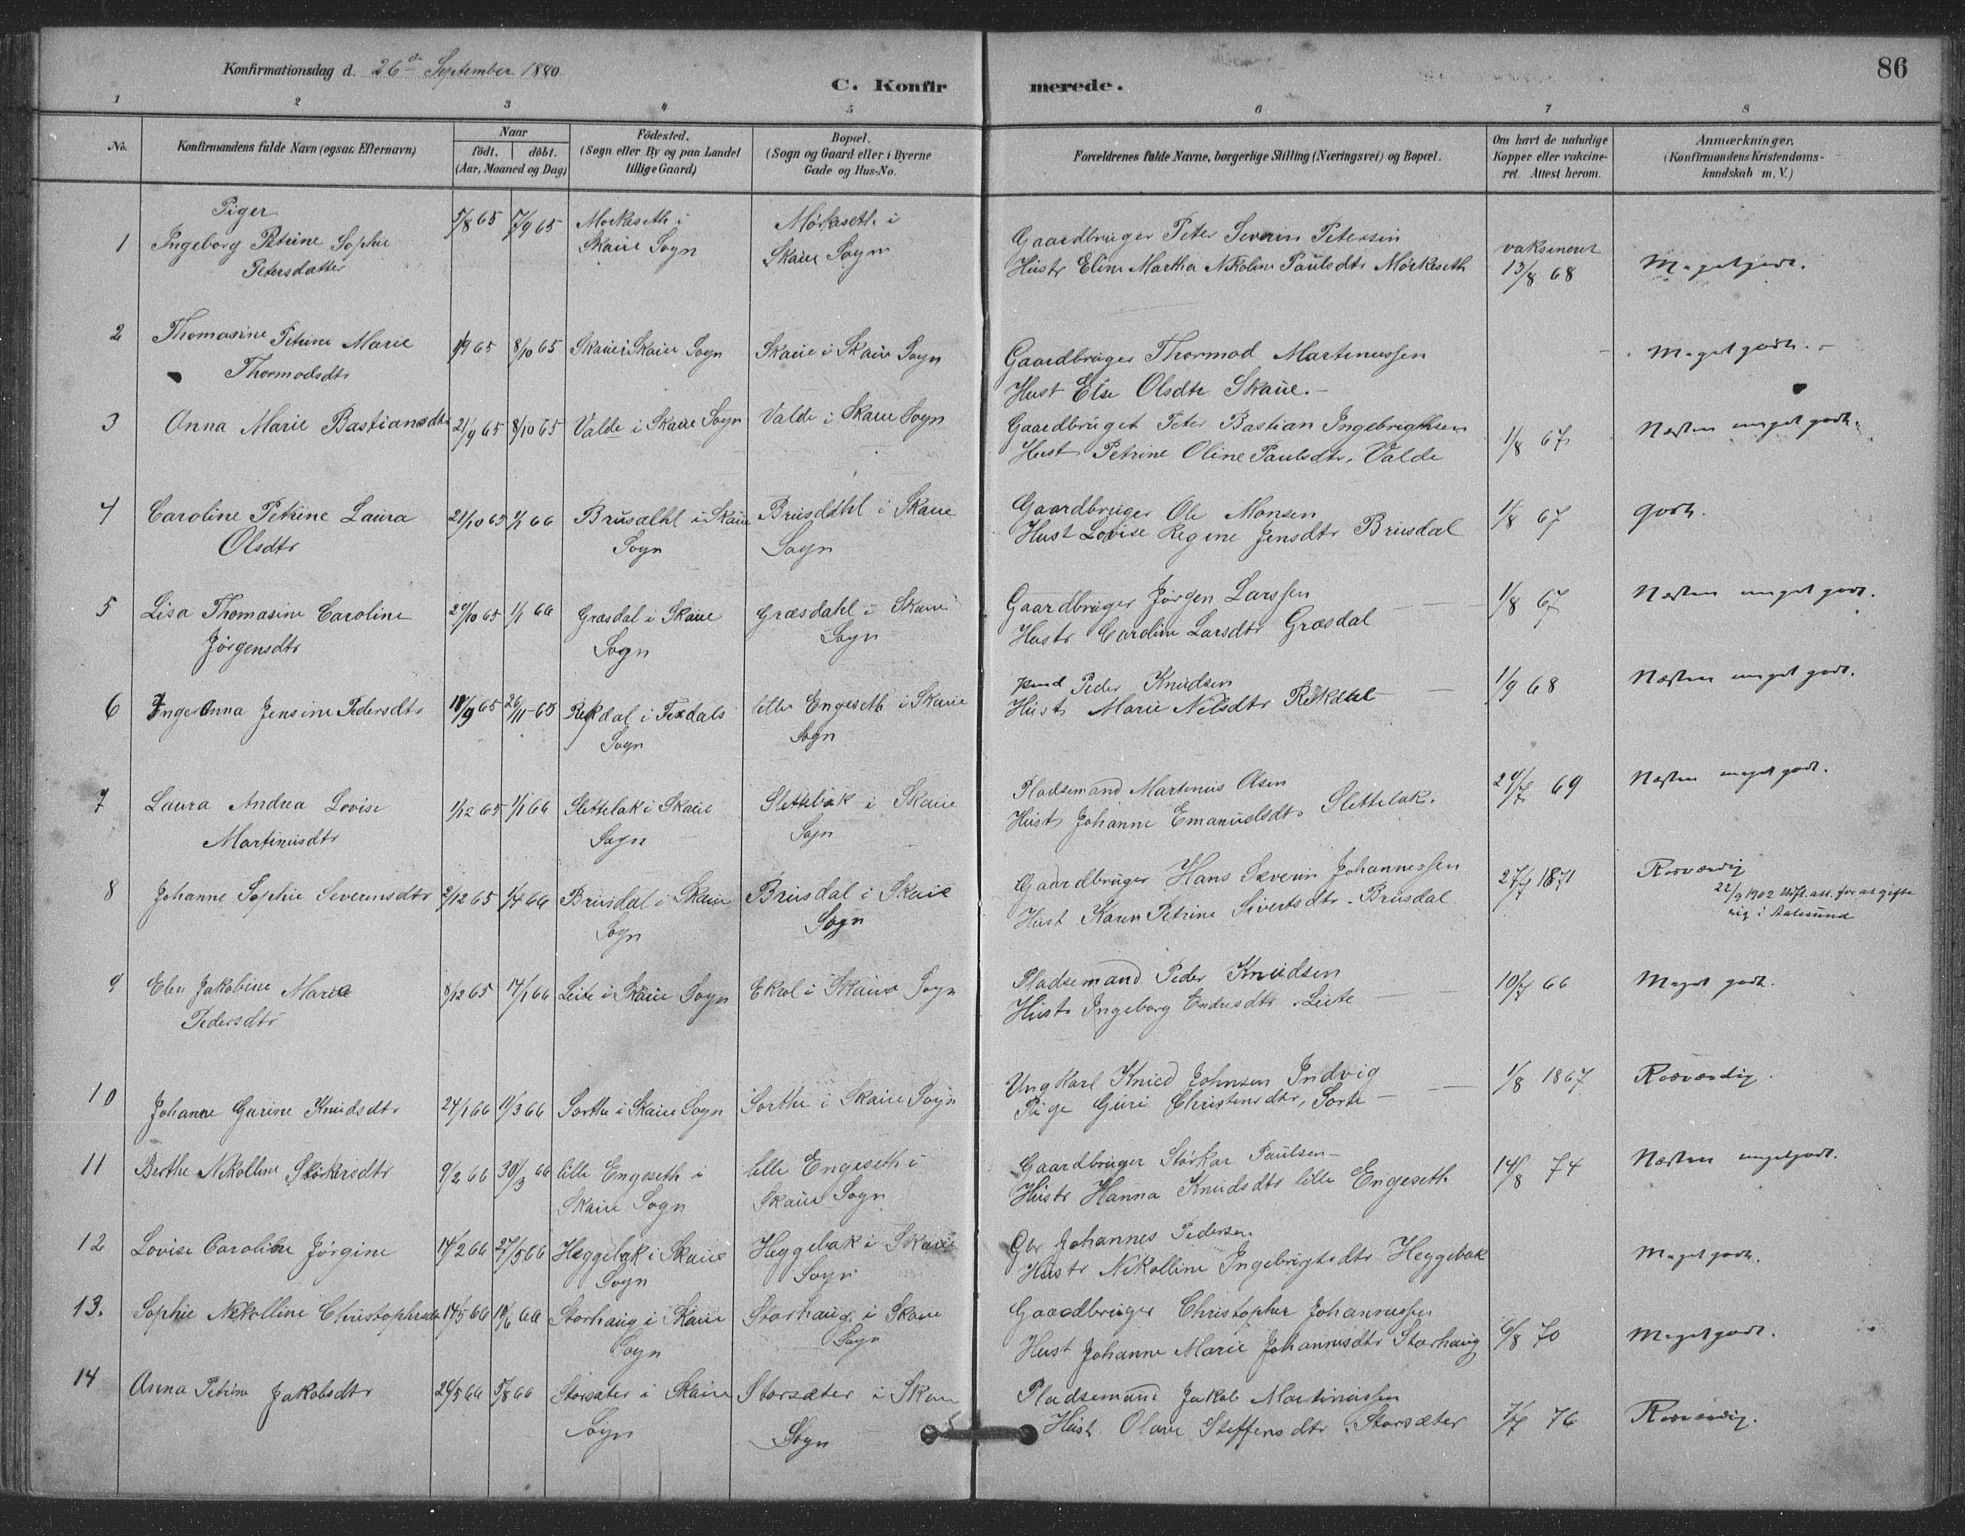 Konfirmationsdag d. 26de September 1880
C. Konfirmerede.
86
1 2 3 4 5 6 7 8
No.
Konfirmandens fulde Navn (ogsaa Efternavn)
Naar
födt. | döbt.
(Aar, Maaned og Dag)
Födested.
(Sogn eller By og paa Landet
tillige Gaard)
Bopæl.
(Sogn og Gaard eller i Byerne
Gade og Hus-No.
Forældrenes fulde Navne, borgerlige Stilling (Næringsvei) og Bopæl.
Om havt de naturlige
Kopper eller vakcine-
ret. Attest herom.
Anmærkninger.
(Konfirmandens Kristendoms-
kundskab m. V.)
Piger
1 Ingeborg Petrine Sophie
Petersdatter
5/8 65 17/9 65
Morkeseth i
Skaue Sogn
Mørkeseth i
Skaue Sogn
Gaardbruger Peter Severin Petersen
Hustr Eline Martha Nikoline Paulsdtr Mørkeseth
vaksineret
13/8 68
Megetgodt.
2 Thomasine Petrine Marie
Thormodsdtr
8/10 65
Skaue i Skaue Sogn
Skaue i Skaue Sogn
Gaardbruger Thormod Martinussen
Hust Else Olsdtr Skaue.-
Meget godt.-
3 Anna Marie Bastiansdtr
21/9 65 8/10 65
Valde i Skaue Sogn
Valde i Skaue Sogn
Gaardbruget Peter Bastian Ingebrigtsen
Hust Petrine Oline Paulsdtr. Valde
1/8 67
Næsten meget godt.
4 Caroline Petrine Laura
Olsdtr
21/10 65 1/1 66
Brusdalhl i Skaue
Sogn
Brusdahl i Skaue
Sogn
Gaardbruger Ole Monsen
Hust Lovise Regine Jensdtr Brusdal
1/8 67
godt.
5 Lisa Thomasine Caroline
Jørgensdtr
29/10 65 1/1 66
Grasdal i Skaue
Sogn
Græsdahl i Skaue
Sogn
Gaardbruger Jørgen Larssen
Hustr Caroline Larsdtr Græsdal
1/8 67
Næsten meget godt.
6 Inger Anna Jensine Pedersdtr
18/9 65 26/11 65
Rekdal i Fixdals
Sogn
lille Engeseth i Skaue
Sogn
Peder Knudsen
Hust Marie Nilsdtr Rekdal
1/9 68
Næsten meget godt.
7 Laura Andrea Lovise
Martinusdtr
1/12 65 1/1 66
Slettebak i Skaue
Sogn
Slettebak i Skaue
Sogn
Pladsemand Martinus Olsen
Hust Johanne Emanuelsdtr Slettebak.
24/7 69
Næsten meget godt.
8 Johanne Sophie Severinsdtr
2/12 65 1/4 66
Brusdal i Skaue
Sogn
Brusdal i Skaue
Sogn
Gaardbruger Hans Severin Johannessen
Hust Karen Petrine Sivertsdtr. Brusdal
27/7 1871
Rosværdig
22/9 1902 Utst. att. for at gifte
sig i Aalesund
9 Elen Jakobine Marie
Pedersdtr
8/12 65 14/1 66
Leite i Skaue Sogn
Ekrol i Skaue Sogn
Pladsemand Peder Knudsen
Hustr Ingeborg Endresdtr. Leite
10/7 66
Meget godt.
10 Johanne Gurine Knudsdtr
24/1 66 11/3 66
Sorthe i Skaue Sogn
Sorthe i Skaue Sogn
Ungkarl Knud Johnsen Indvig
Pige Guri Christensdtr, Sorte
1/8 1867
Rosværdig.
11 Berthe Nikolline Størkersdtr
9/2 66 30/3 66
lille Engeseth i
Skaue Sogn
lille Engeseth i
Skaue Sogn
Gaardbruger Størkar Paulsen-
Hustr Hanna Knudsdtr lille Engeseth
14/8 74
Næsten megetgodt.
12 Lovise Caroline Jørgine
14/2 66 27/5 66
Heggebak i Skaue
Sogn
Heggebak i Skaue
Sogn
Gbr Johannes Pedersen
Hustr Nikolline Ingebrigtsdtr Heggebak
Megetgodt.
13. Sophie Nikolline Christophersdtr
14/5 66 10/6 66
Storhaug i Skaue
Sogn
Storhaug i Skaue
Sogn
Gaardbruger Christopher Johannessen
Hust Johanne Marie Johannesdtr Storhaug
6/8 70
Megetgodt.
14 Anna Petrine Jakobsdtr
24/5 66 5/8 66
Storsæter i Skaue
Sogn
Storsæter i Skaue
Sogn
Pladsemand Jakob Martinussen
Hust. Olave Steffensdtr. Storsæter
7/7 76
Rosværdig.